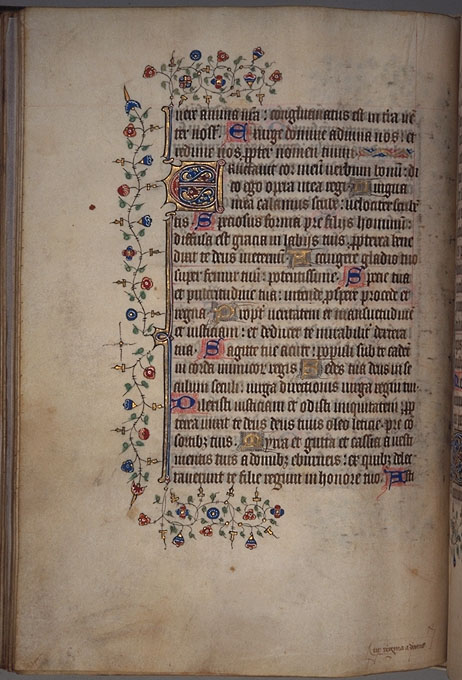 mere anima nra : conglutinatus est in tra ve
ter nostr Exurge domine adiuva nos : et
redime nos ppter nomen tuum
Eructavit cor meu verbum bonu : di
co ego opera mea regi Lingua
mea calamus scribe : velociter scribe
tis Speciosus forma pre filijs hominum :
diffusa est gracia in labijs tuis ppterea bene
dixit te deus in eternu Accingere gladio tuo
super femur tuu : potentissime Specie tua
et pulcritudine tua : intende pspere procede et
regna Propter veritatem et mansuetudine
et iusticiam : et deducet te mirabilit dextera
tua Sagitte tue acute : populi sub te cadent
in corda inimicor regis Sedes tua deus in se
culum seculi : virga directionis virga regni tui
Dilexisti iusticiam et odisti iniquitatem : pp
terea unxit te deus deus tuus oleo leticie pre co
sortibz tuis Myrra et gutta et cassia a vesti
mentis tuis a domibz eburneis : ex quibz delec
taverunt te filie regum in honore tuo Asti
tit regina a dext